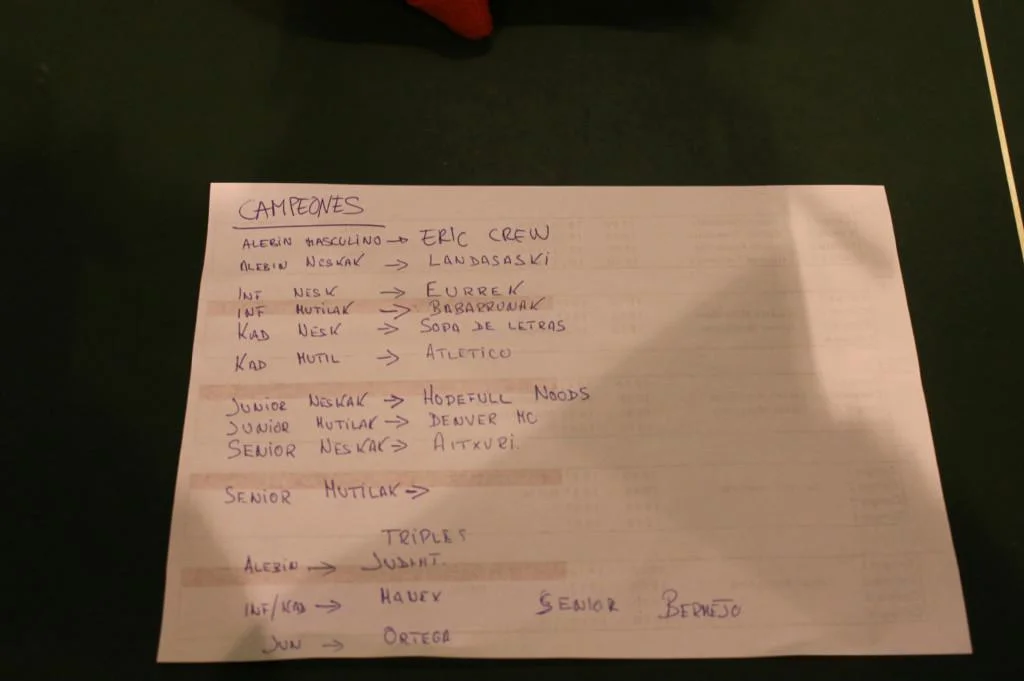 CAMPEONES
ALEBIN MASCULINO → ERIC CREW
ALEBIN NESKAK → LANDASASKI
INF NESK → EURREK
INF MUTILAK → BABARRUNAK
KAD NESK → SOPA DE LETRAS
KAD MUTIL → ATLETICO
JUNIOR NESKAK → HOPEFULL NOODS
JUNIOR MUTILAK → DENVER MC
SENIOR NESKAK → AITXURI.
SENIOR MUTILAK →
TRIPLES
ALEBIN →
INF/KAD → MANEX SENIOR BERMEJO
JUN → ORTEGA